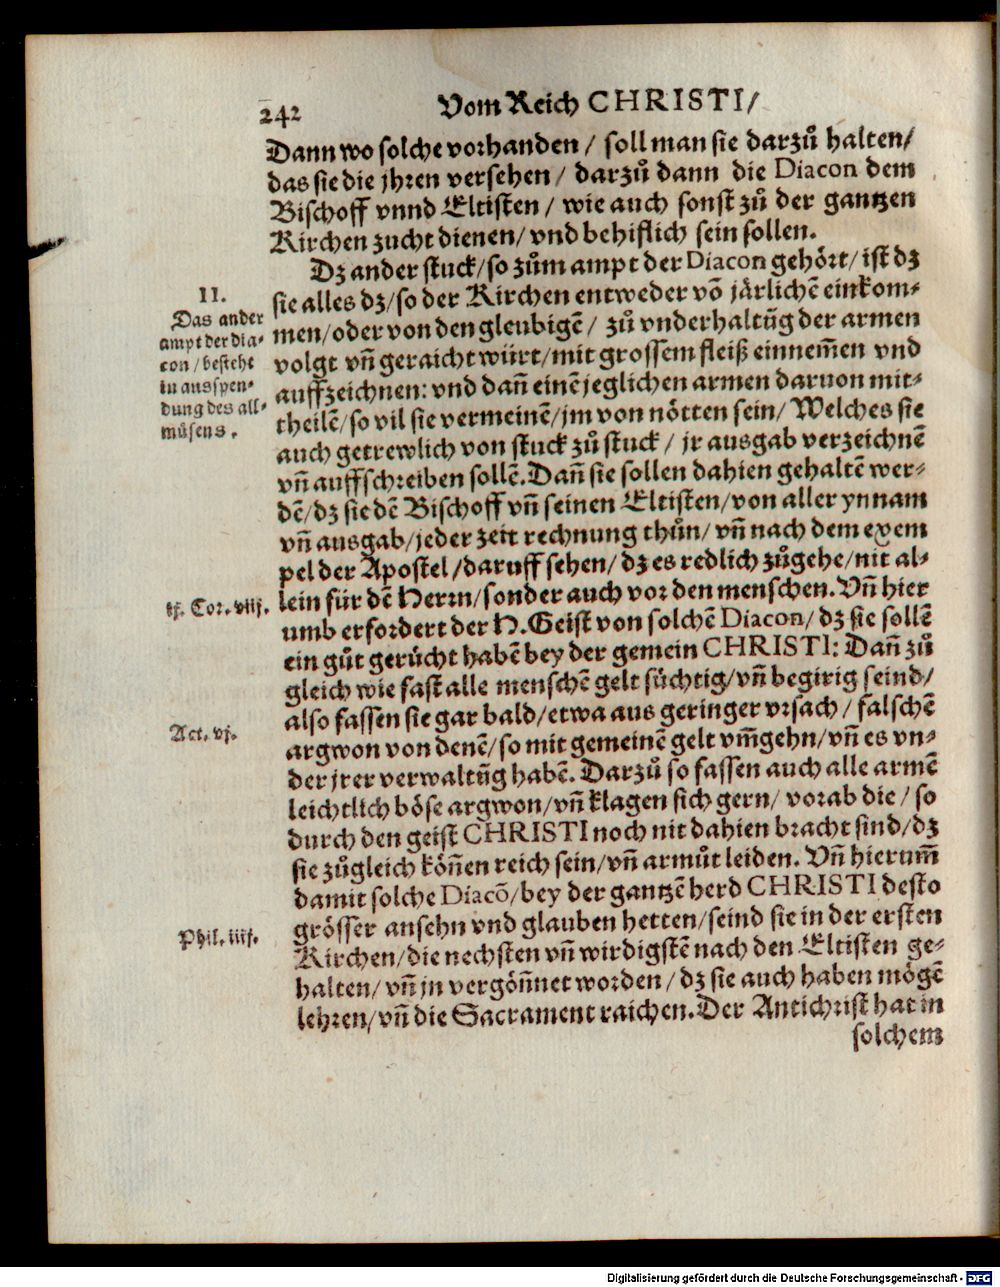 242
Vom Reich CHRISTI/
Dann wo solche vorhanden / soll man sie darzuͦ halten/
das sie die jhren versehen / darzuͦ dann die Diacon dem
Bischoff vnnd Eltisten / wie auch sonst zuͦ der gantzen
Kirchen zucht dienen/ vnd behiflich sein sollen.
Dz ander stuck/ so zuͦm ampt der Diacon gehört/ ist dz
sie alles dz/ so der Kirchen entweder võ järlichẽ einkom-
men/ oder von den gleubigẽ / zuͦ vnderhaltũg der armen
volgt vñ geraicht würt/ mit grossem fleiß einnem̃en vnd
auffzeichnen: vnd dañ einẽ jeglichen armen daruon mit-
theilẽ/ so vil sie vermeinẽ/ jm von nötten sein/ Welches sie
auch getrewlich von stuck zuͦ stuck / jr ausgab verzeichnẽ
vñ auffschreiben sollẽ. Dañ sie sollen dahien gehaltẽ wer-
dẽ/ dz sie dẽ Bischoff vñ seinen Eltisten/ von aller ynnam
vñ ausgab/ jeder zeit rechnung thuͦn/ vñ nach dem exem
pel der Apostel / daruff sehen/ dz es redlich zuͦgehe/ nit al-
lein für dẽ Herrn/ sonder auch vor den menschen. Vñ hier
umb erfordert der H. Geist von solchẽ Diacon/ dz sie sollẽ
ein guͦt gerücht habẽ bey der gemein CHRISTI: Dañ zuͦ
gleich wie fast alle menschẽ gelt süchtig/ vñ begirig seind/
also fassen sie gar bald/ etwa aus geringer vrsach / falschẽ
argwon von denẽ/ so mit gemeinẽ gelt vm̃gehn/ vñ es vn-
der jrer verwaltũg habẽ. Darzuͦ so fassen auch alle armẽ
leichtlich böse argwon/ vñ klagen sich gern/ vorab die / so
durch den geist CHRISTI noch nit dahien bracht sind/ dz
sie zuͦgleich köñen reich sein/ vñ armuͦt leiden. Vñ hierum̃
damit solche Diacõ/ bey der gantzẽ herd CHRISTI desto
grösser ansehn vnd glauben hetten/ seind sie in der ersten
Kirchen/ die nechsten vñ wirdigstẽ nach den Eltisten ge-
halten/ vñ jn vergöñnet worden / dz sie auch haben mögẽ
lehren/ vñ die Sacrament raichen. Der Antichrist hat in
solchem
II.
Das ander
ampt der dia-
con / besteht
in ausspen-
dung des all-
müsens.
ij. Cor. viij.
Act. vj.
Phil. iiij.
Digitalisierung gefördert durch die Deutsche Forschungsgemeinschaft - DFG